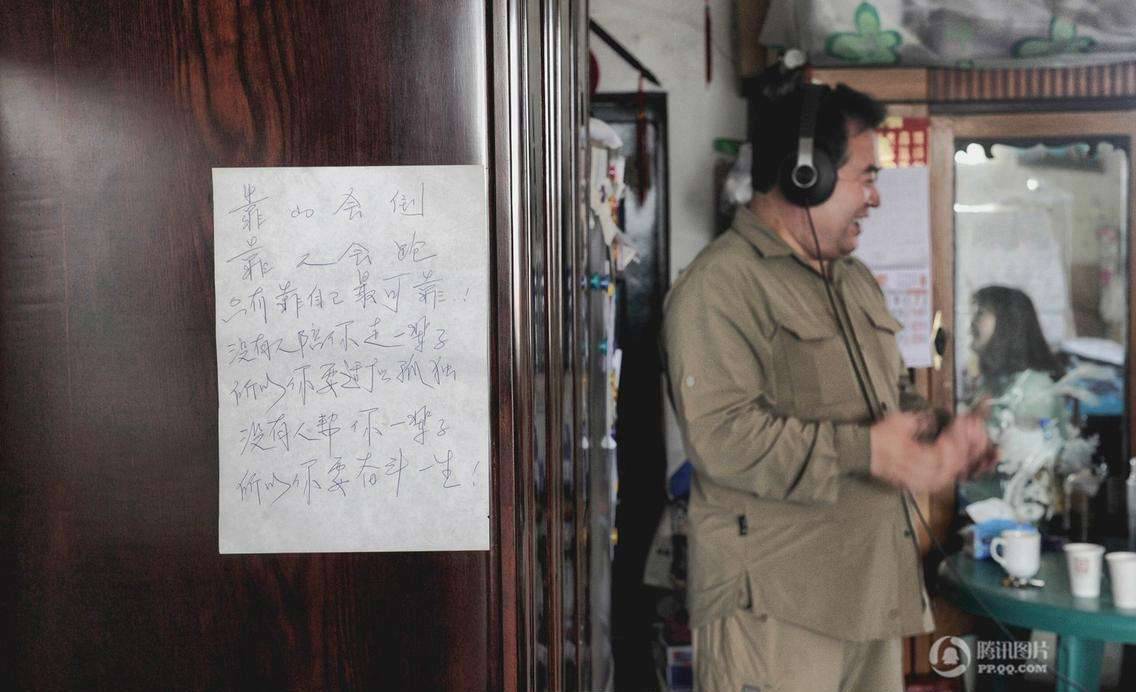 靠山会倒
靠人会跑
只有靠自己最可靠!
没有人陪你走一辈子
所以你要适应孤独
没有人帮你一辈子
所以你要奋斗一生!
腾讯图片
PP.QQ.COM